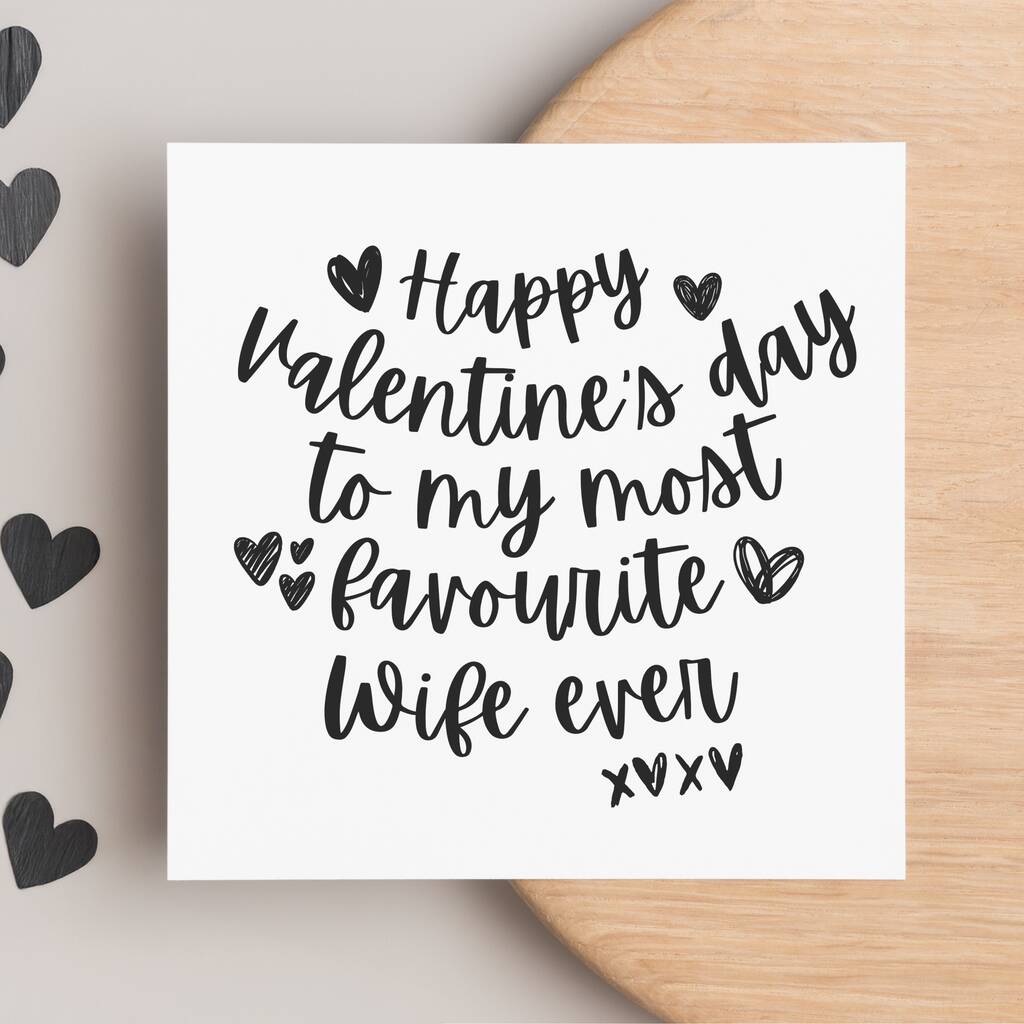 Happy
Valentine's day
to my most
favourite
Wife ever
x♥x♥